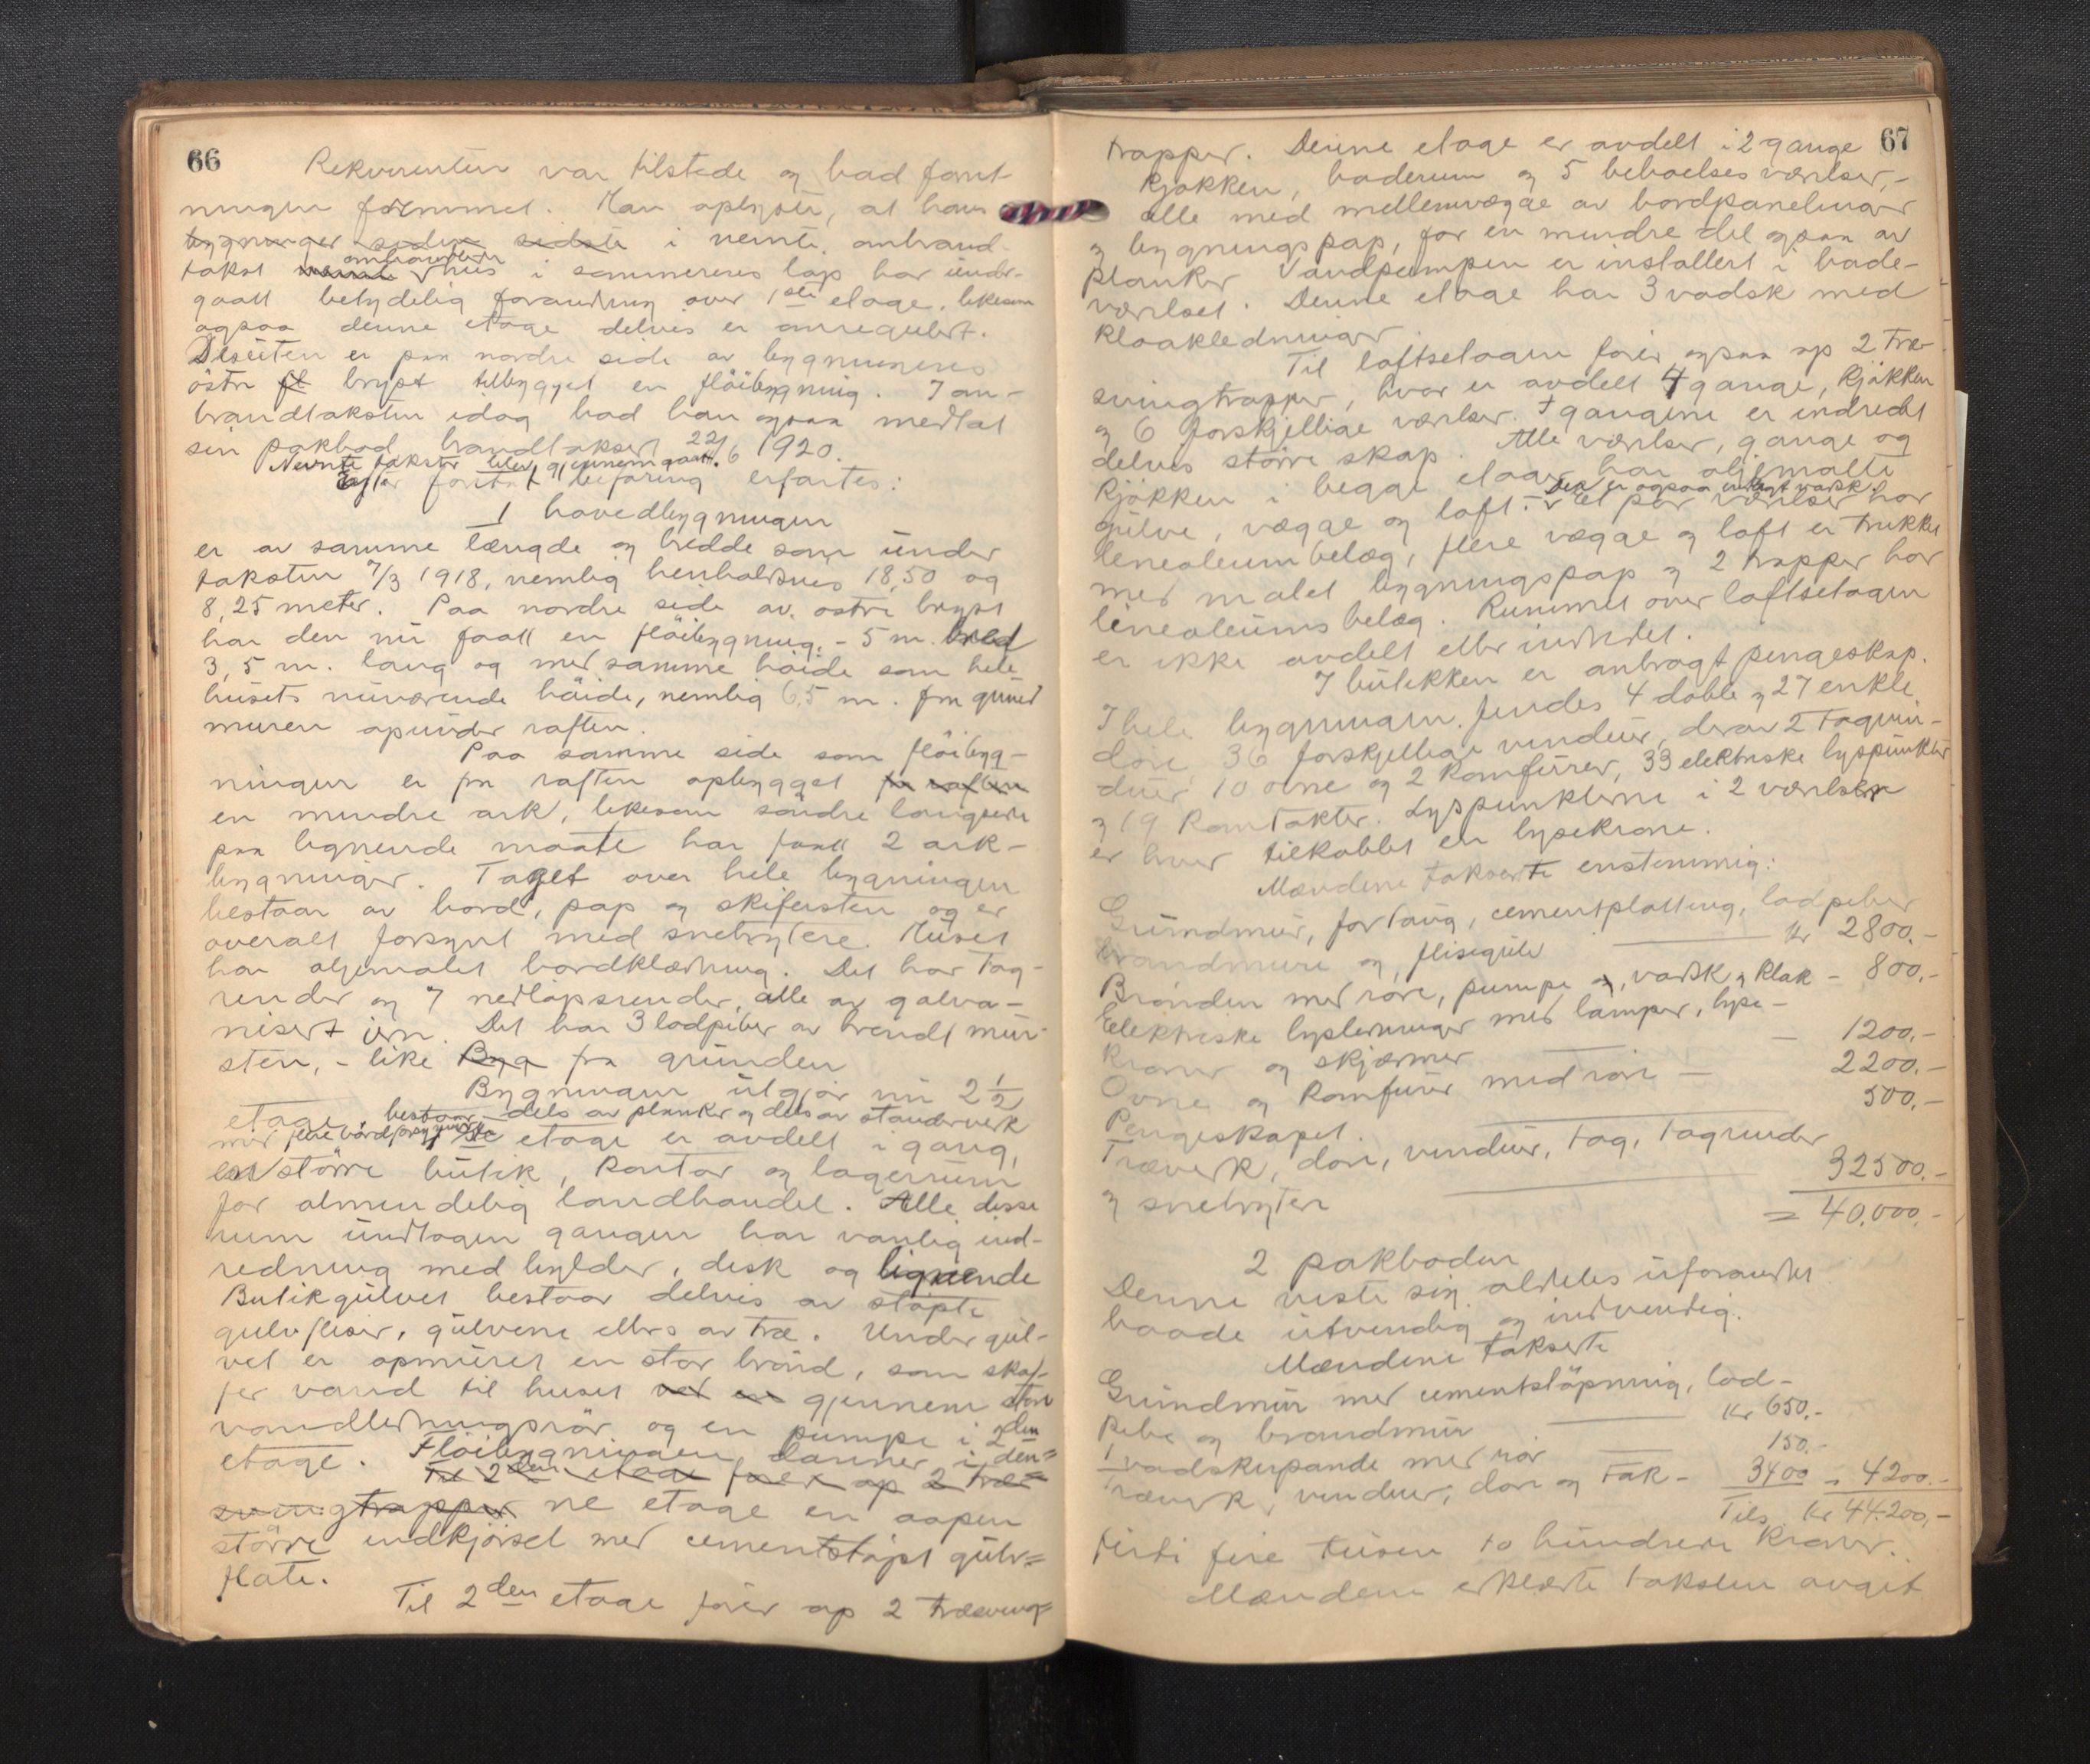 66
Rekvirenten var tilstede og bad foret-
ningen fremmet. Han oplyste, at hans
bygninger siden sidste i nevnte ombrand-
takst omhandlede hus i sommerens løp har under-
gaatt betydelig forandring over 1ste etage, likesom
ogsaa denne etage delvis er omregulert.
Desuten er paa nordre side av bygningens
østre fl bryst tilbygget en fløibygning. I om-
brandtaksten idag bad han ogsaa medtat
sin pakbod brandtaksert 22/6 1920.
Nevnte takster blev gjennemgaatt.
Efter foretat befaring erfartes:
1 hovedbygningen
er av samme længde og bredde som under
taksten 7/3 1918, nemlig henholdsvis 18,50 og
8,25 meter. Paa nordre side av østre bryst
har den nu faatt en fløibygning, - 5 m. bred
3,5 m. lang og med samme høide som hele
husets nuværende høide, nemlig 6,5 m. fra grund
muren opunder raften.
Paa samme side som fløibyg-
ningen er fra raften opbygget fra raften
en mindre ark, likesom søndre langside
paa lignende maate har faatt 2 ark-
bygninger. Taget over hele bygningen
bestaar av bord, pap og skifersten og er
overalt forsynt med snebrytere. Huset
har oljemalet bordklædning. Det har tag-
render og 7 nedløpsrender, alle av galva-
nisert jern. Det har 3 lodpiber av brendt mur-
sten, - like Byg fra grunden
Bygningen utgjør nu 2 1/2
etage, bestaar dels av planker og dels av standerverk
med flere
etage er avdelt i gang,
en større butik, kontor og lagerrum
for almindelig landhandel. Alle disse
rum undtagen gangen har vanlig ind-
redning med hylder, disk og lignende
Butikgulvet bestaar delvis av støpte
gulvfliser, gulvene ellers av træ. Under gul-
vet er opmuret en stor brønd, som skaf-
fer vand til huset ved en gjennem store
vandledningsrør og en pumpe i 2den
etage. Fløibygningen danner i den=
Til 2den etage fører op 2 træ=
svingtrapper ne etage en aapen
større indkjørsel med cementstøpt gulv=
flate.
Til 2den etage fører op 2 træsving=
67
trapper. Denne etage er avdelt i 2 gange
kjøkken, baderum og 5 beboelsesværelser,-
alle med mellemvægge av bordpanelinger
og bygningspap, for en mindre del ogsaa av
planker Vandpumpen er installert i bade-
værelset. Denne etage har 3 vadsk med
kloakledninger.
Til loftsetagen fører ogsaa op 2 træ-
svingtrapper, hvor er avdelt 4 gange, kjøkken
og 6 forskjellige værelser. I gangene er indredet
delvis større skap. Alle værelser, gange og
kjøkken i begge etager har oljemalte
gulve, vægge og loft. - Der er ogsaa indlagt vadsk. Et par værelser har
lineoleumbelæg, flere vægge og loft er trukket
med malet bygningspap og 2 trapper har
lineoleumsbelæg. Rummet over loftsetagen
er ikke avdelt eller indredet.
I butikken er anbragt pengeskap.
I hele bygningen findes 4 doble og 27 enkle
døre 36 forskjellige vinduer, derav 2 tagvin-
duer, 10 ovne og 2 komfurer, 33 elektriske lyspunkter
og 19 kontakter. Lyspunktene i 2 værelser
er hver tilkoblet en lysekrone.
Mændene takserte enstemmig:
Grundmur, fortaug, cementplatting, lodpiber
brandmure og flisegulv — kr 2800.-
Brønden med røre, pumpe og, vadsk og kloak - 800.-
Elektriske lysledninger med lamper, lyse-
kroner og skjærmer — - 1200.-
Ovne og komfurer med røre — 2200.-
Pengeskapet. — 500.-
Træverk, døre, vinduer, tag, tagrender
og snebryter — 32500.-
= 40.000.-
2 pakboden
Denne viste sig aldeles uforandret
baade utvendig og indvendig.
Mændene takserte
Grundmur med cementstøpning, lod-
pibe og brandmur — kr 650.-
1 vadskepande med rør — 150.-
Træverk, vinduer, døre og tak - 3400 = 4200.-
Tils. kr 44.200,-
firti fire tusen to hundrede kroner.
Mændene erklærte taksten avgit